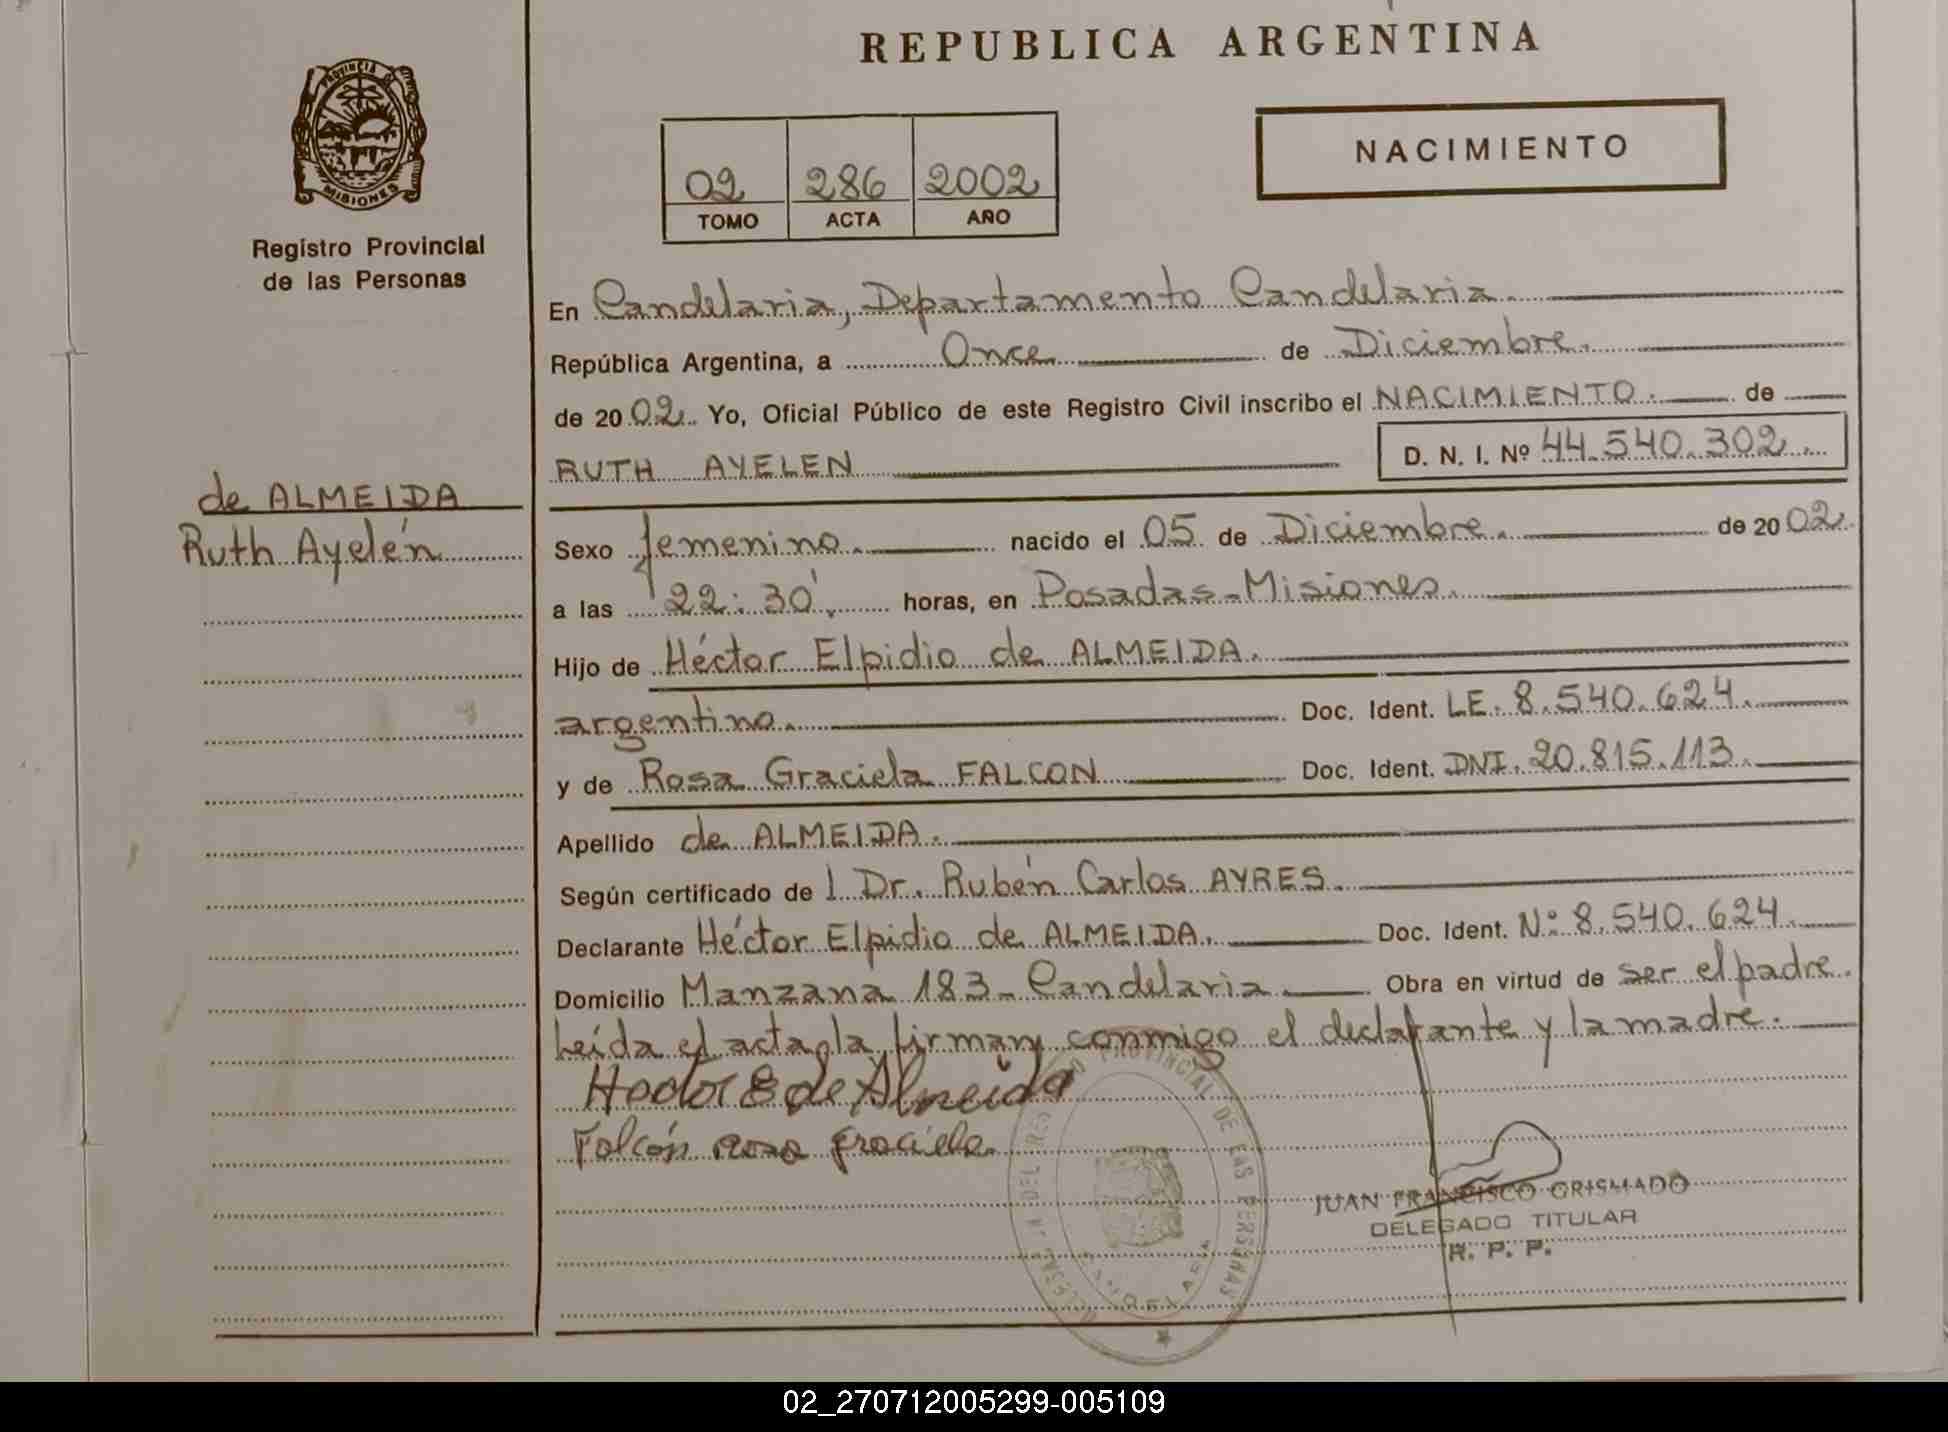 REPUBLICA ARGENTINA
PROVINCIA DE
MISIONES
Registro Provincial
de las Personas
02 286 2002
TOMO ACTA AÑO
NACIMIENTO
de ALMEIDA
Ruth Ayelén
En Candelaria, Departamento Candelaria.
República Argentina, a Once de Diciembre.
de 2002. Yo, Oficial Público de este Registro Civil inscribo el NACIMIENTO. de
RUTH AYELEN D. N. I. Nº 44.540.302.
Sexo femenino. nacido el 05 de Diciembre. de 2002.
a las 22:30'. horas, en Posadas-Misiones.
Hijo de Héctor Elpidio de ALMEIDA.
argentino. Doc. Ident. LE. 8.540.624.
y de Rosa Graciela FALCON Doc. Ident. DNI. 20.815.113.
Apellido de ALMEIDA.
Según certificado de l Dr. Rubén Carlos AYRES.
Declarante Héctor Elpidio de ALMEIDA. Doc. Ident. Nº 8.540.624.
Domicilio Manzana 183- Candelaria. Obra en virtud de ser el padre.
Leída el acta, la firman conmigo el declarante y la madre.
Hector E de Almeida
Falcón rosa graciela
PROVINCIAL DE LAS PERSONAS
CANDELARIA
JUAN FRANCISCO GRISMADO
DELEGADO TITULAR
R. P. P.
02_270712005299-005109